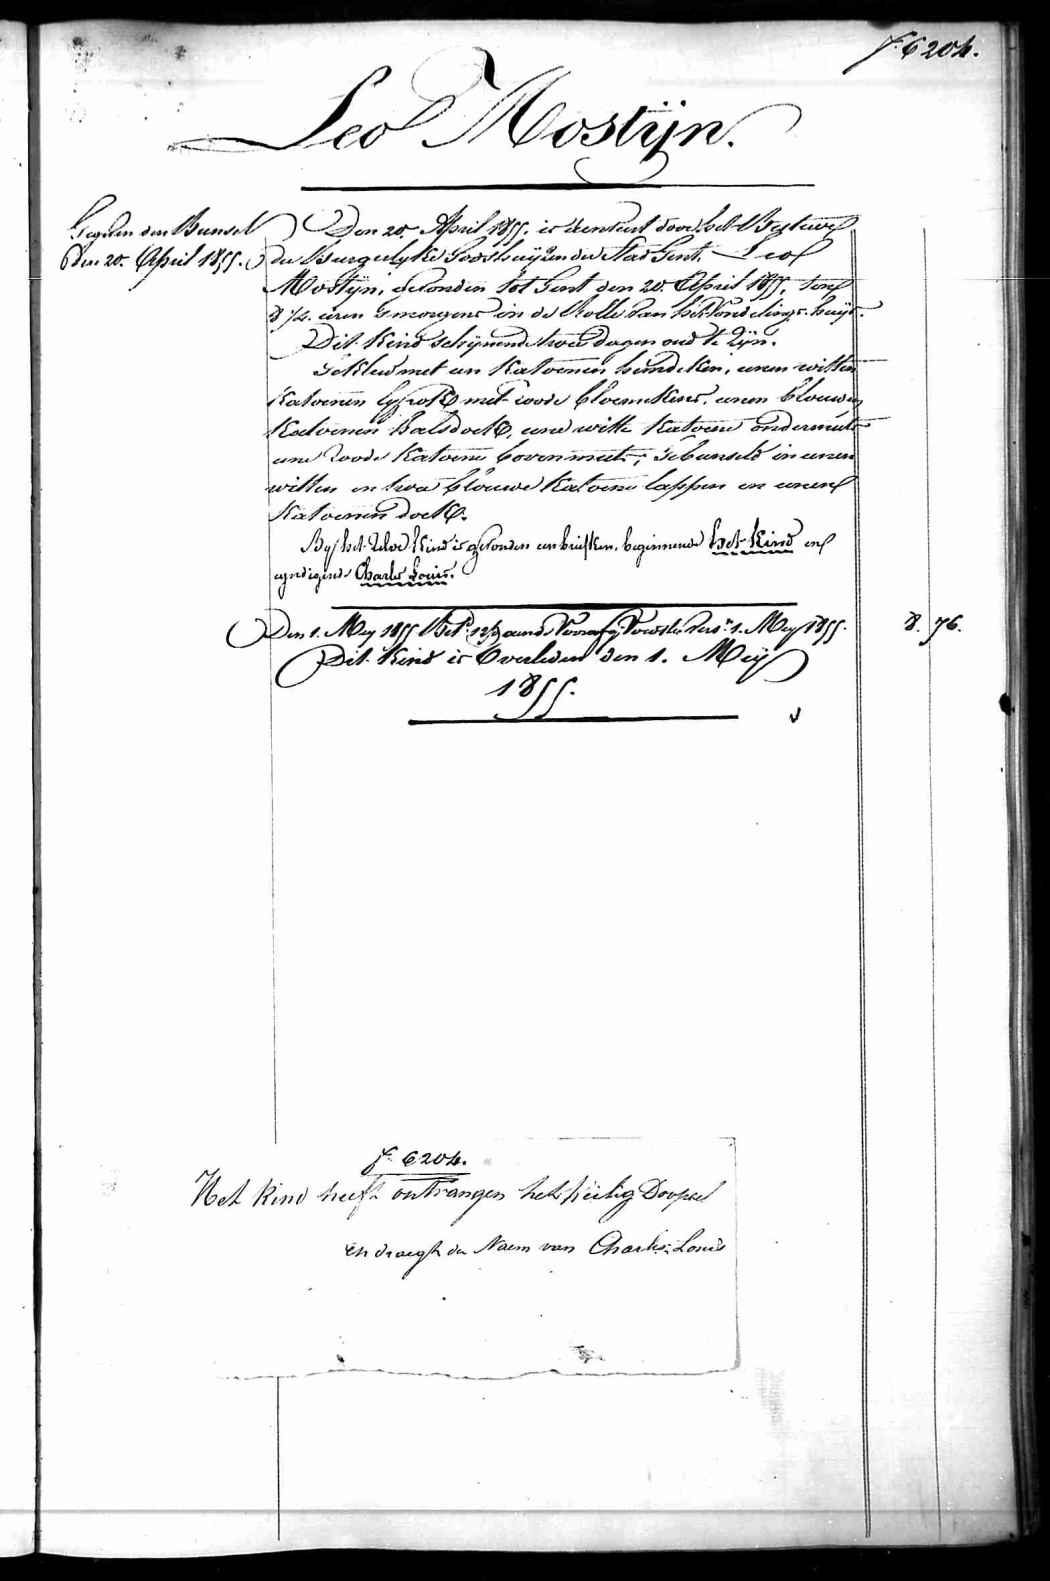 f. 6204.
Leo Mostijn.
Gegeven den Bunsel
den 20. April 1855.
Den 20. April 1855. is besteed door het Bestuur
der Burgelyke Godshuyzen der Stad Gent. Leo
Mostijn, gevonden tot Gent den 20. April 1855, ten
8 1/2. uren smorgens in de Rolle van het Vondelings-huys.
Dit Kind schynende twee dagen oud te zyn.
Gekleed met een Katoenen hemdeken, eenen witten
Katoenen lyfrok met roode bloemekens, eenen blouwen
Katoenen halsdoek, eene witte Katoene ondermuts
eene roode Katoene bovenmuts; Gebunseld in eenen
witten en twee blouwe Katoene lappen en eenen
Katoenen doek.
By het zelve Kind is gevonden een briefken, beginnende het Kind en
eyndigende Charles Louis.
Den 1. Mey 1855 1. Mey 1855.
8. 76.
Dit Kind is Overleden den 1. Meij
1855.
f. 6204.
Het kind heeft ontvangen het heilig Doopsel
en draegt den Naem van Charles Louis